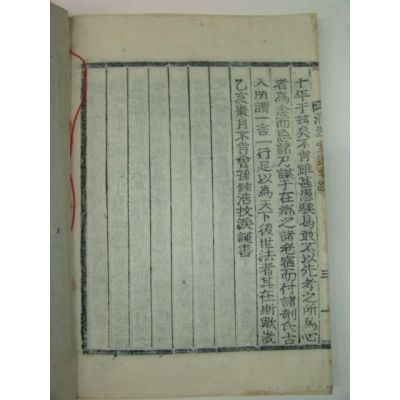 十年于玆矣不肖雖甚愚騃曷敢不以先考之所爲心
者爲念而亟諸乃謀于在鄕之諸老宿而付諸剞氏古
人所謂一言一行足以爲天下後世法者其在斯歟歲
乙亥棗月不肖曾孫 浩抆淚謹書